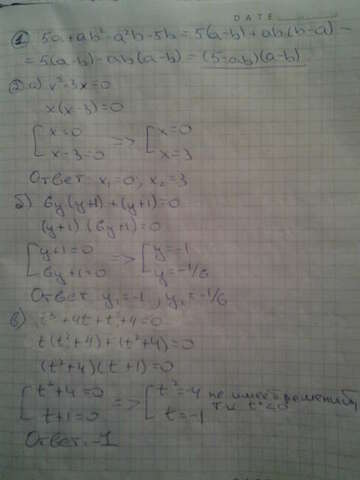 DATE
① 5a+ab²-a²b-5b=5(a-b)+ab(b-a)=
=5(a-b)-ab(a-b)=(5-ab)(a-b)
② а) x²-3x=0
x(x-3)=0
[x=0 => [x=0
x-3=0 x=3
Ответ: x₁=0, x₂=3
б) 6y(y+1)+(y+1)=0
(y+1)(6y+1)=0
[y+1=0 => [y=-1
6y+1=0 y=-1/6
Ответ: y₁=-1, y₂=-1/6
в) t³+4t+t²+4=0
t(t²+4)+(t²+4)=0
(t²+4)(t+1)=0
[t²+4=0 => [t²=-4 не имеет решений,
t+1=0 t=-1 т.к t²<0
Ответ: -1